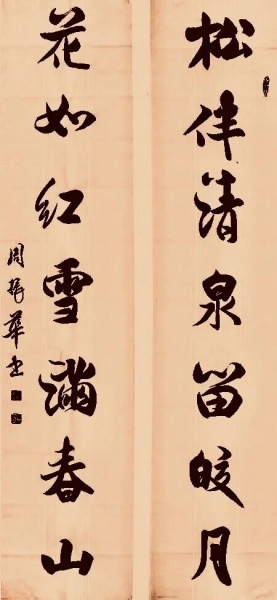 松伴清泉留皎月
花如红雪满春山
周振华书